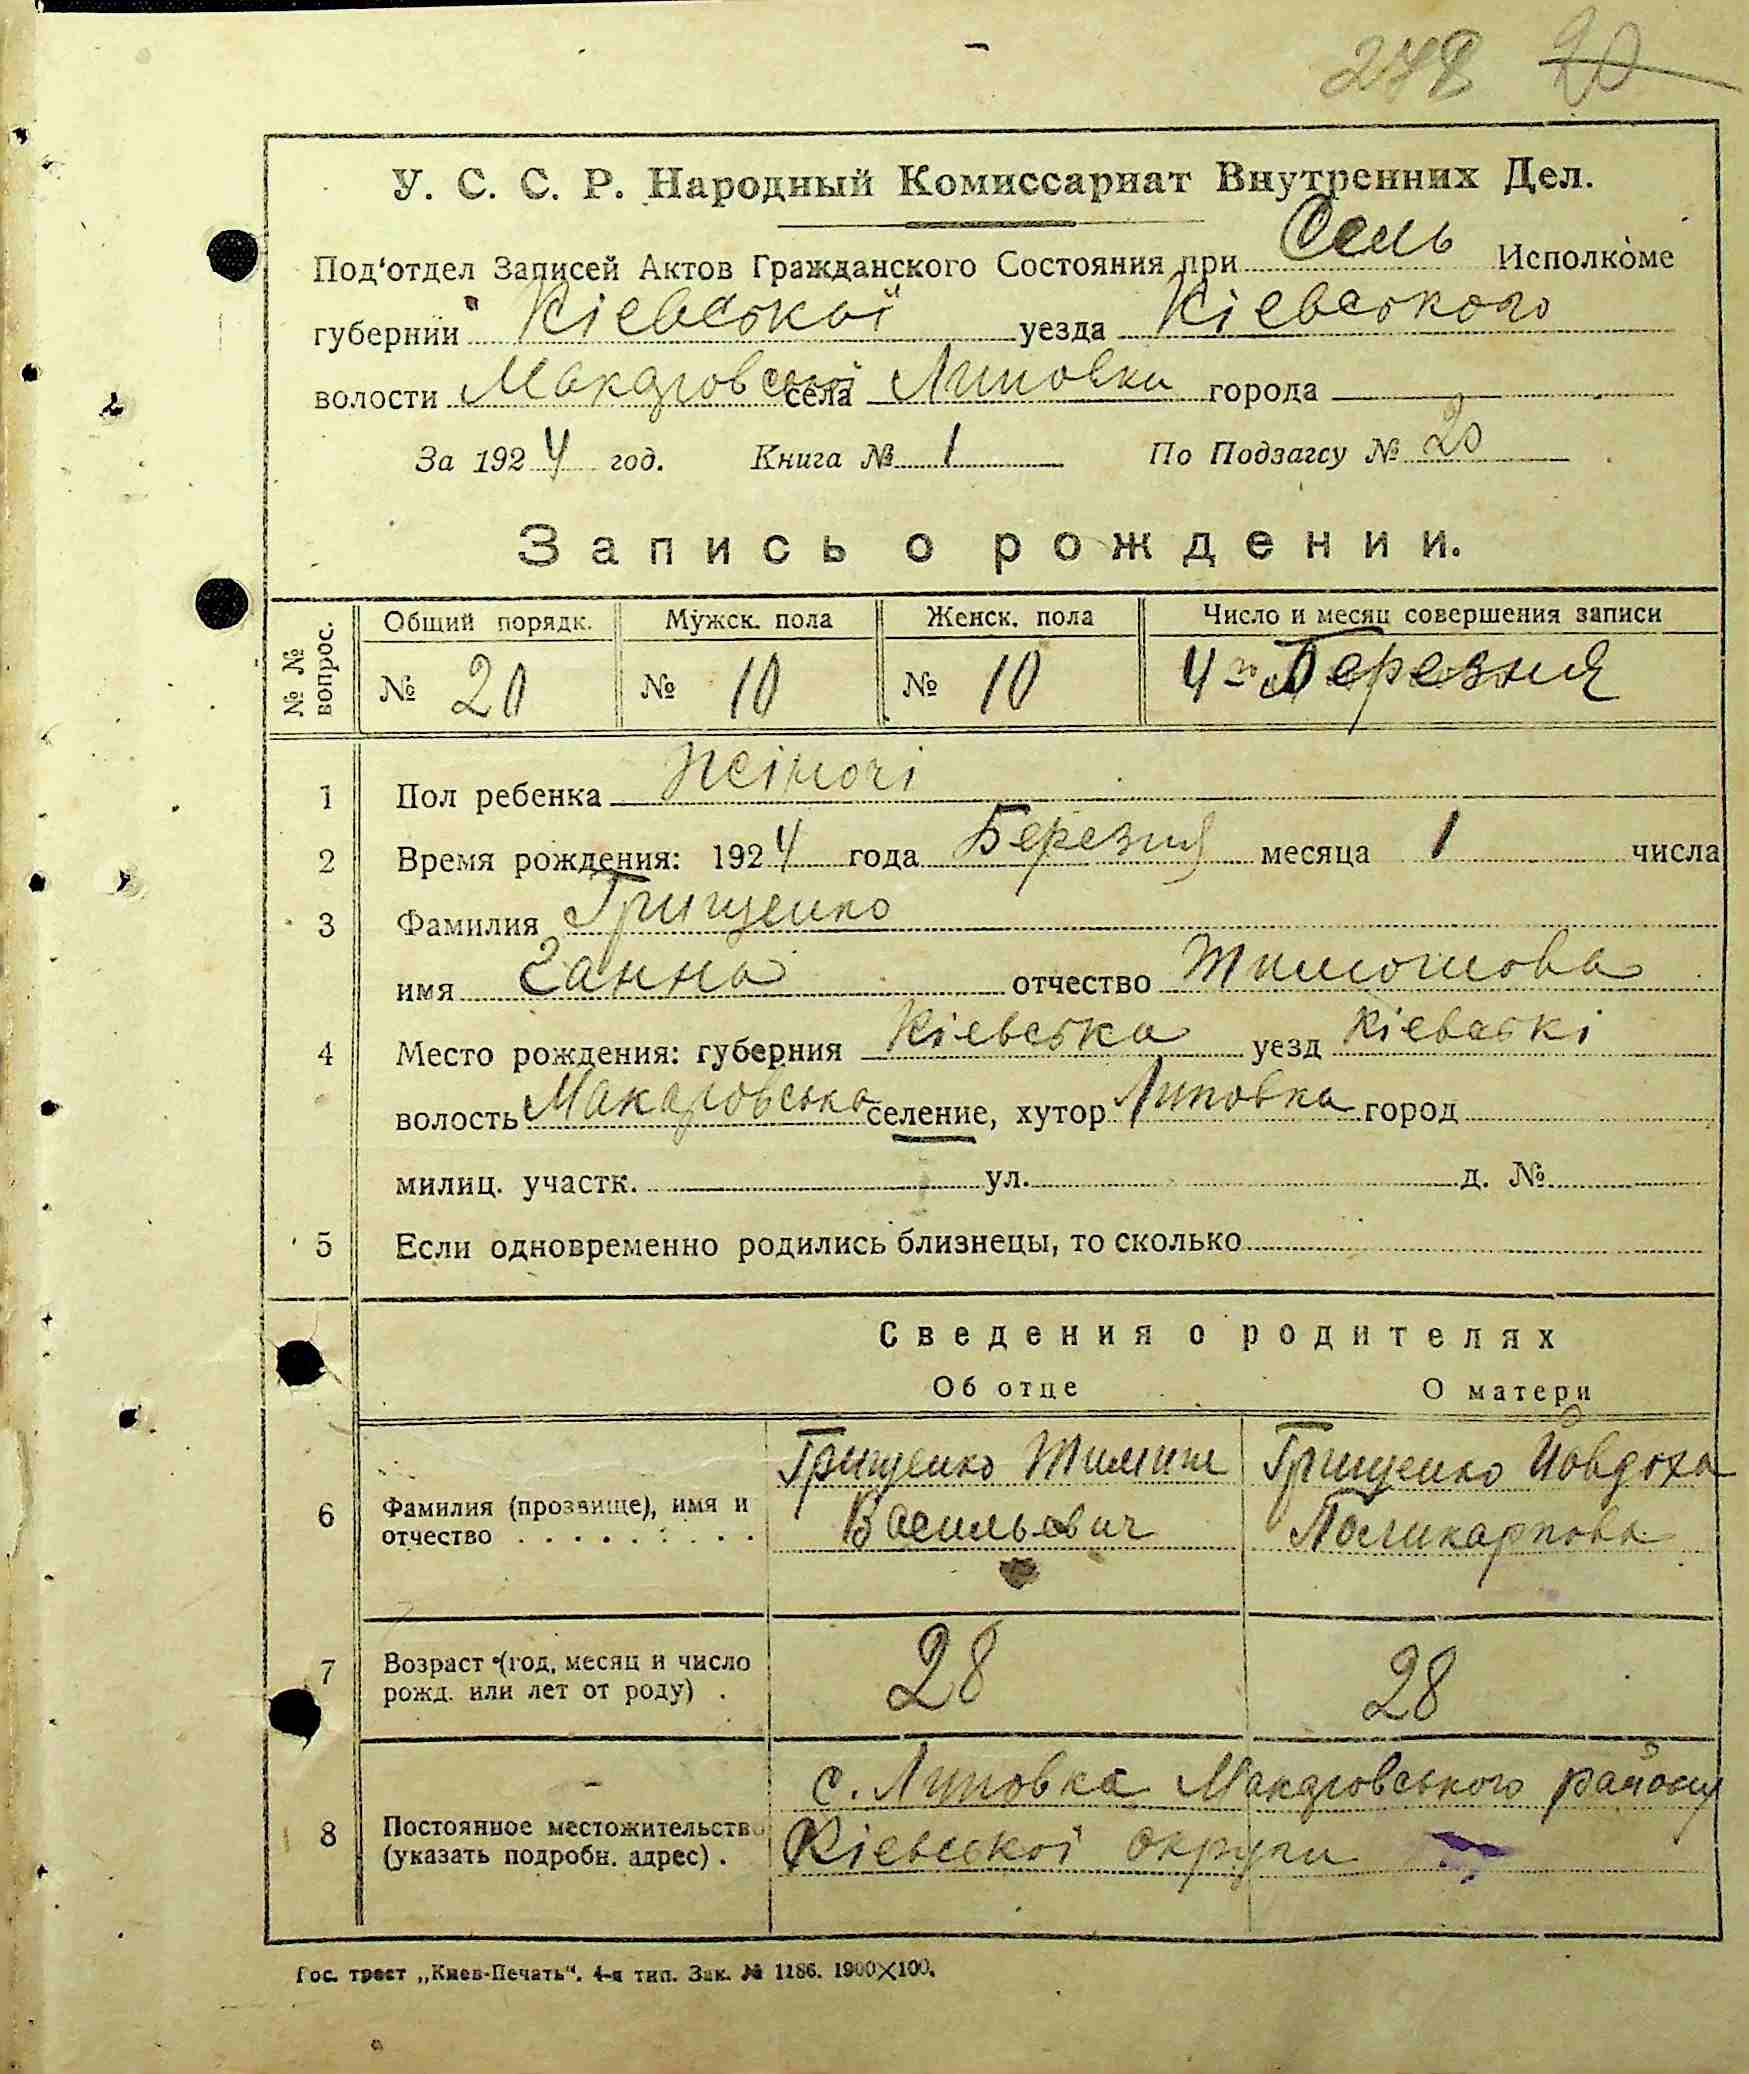 278 20
У. С. С. Р. Народный Комиссариат Внутренних Дел.
Под'отдел Записей Актов Гражданского Состояния при Сель Исполкоме
губернии Кіевської уезда Кіевського
волости Макаровської села Липовки города
За 1924 год. Книга № 1 По Подзагсу № 20
Запись о рождении.
№ № вопрос. Общий порядк. Мужск. пола Женск. пола Число и месяц совершения записи
№ 20 № 10 № 10 4го Березня
1 Пол ребенка Жіночі
2 Время рождения: 1924 года Березня месяца 1 числа
3 Фамилия Грищенко
имя Ганна отчество Тимошова
4 Место рождения: губерния Кіевська уезд Кіевські
волость Макаровська селение, хутор Липовка город
милиц. участк. ул. д. №
5 Если одновременно родились близнецы, то сколько
Сведения о родителях
Об отце О матери
Грищенко Тимиш Грищенко Йовдоха
6 Фамилия (прозвище), имя и отчество Васильович Поликарпова
7 Возраст (год, месяц и число рожд. или лет от роду) . 28 28
с. Липовка Макаровського району
8 Постоянное местожительство (указать подробн. адрес) . Кіевської округи
Гос. трест „Киев-Печать“. 4-я тип. Зак. № 1186. 1900×100.